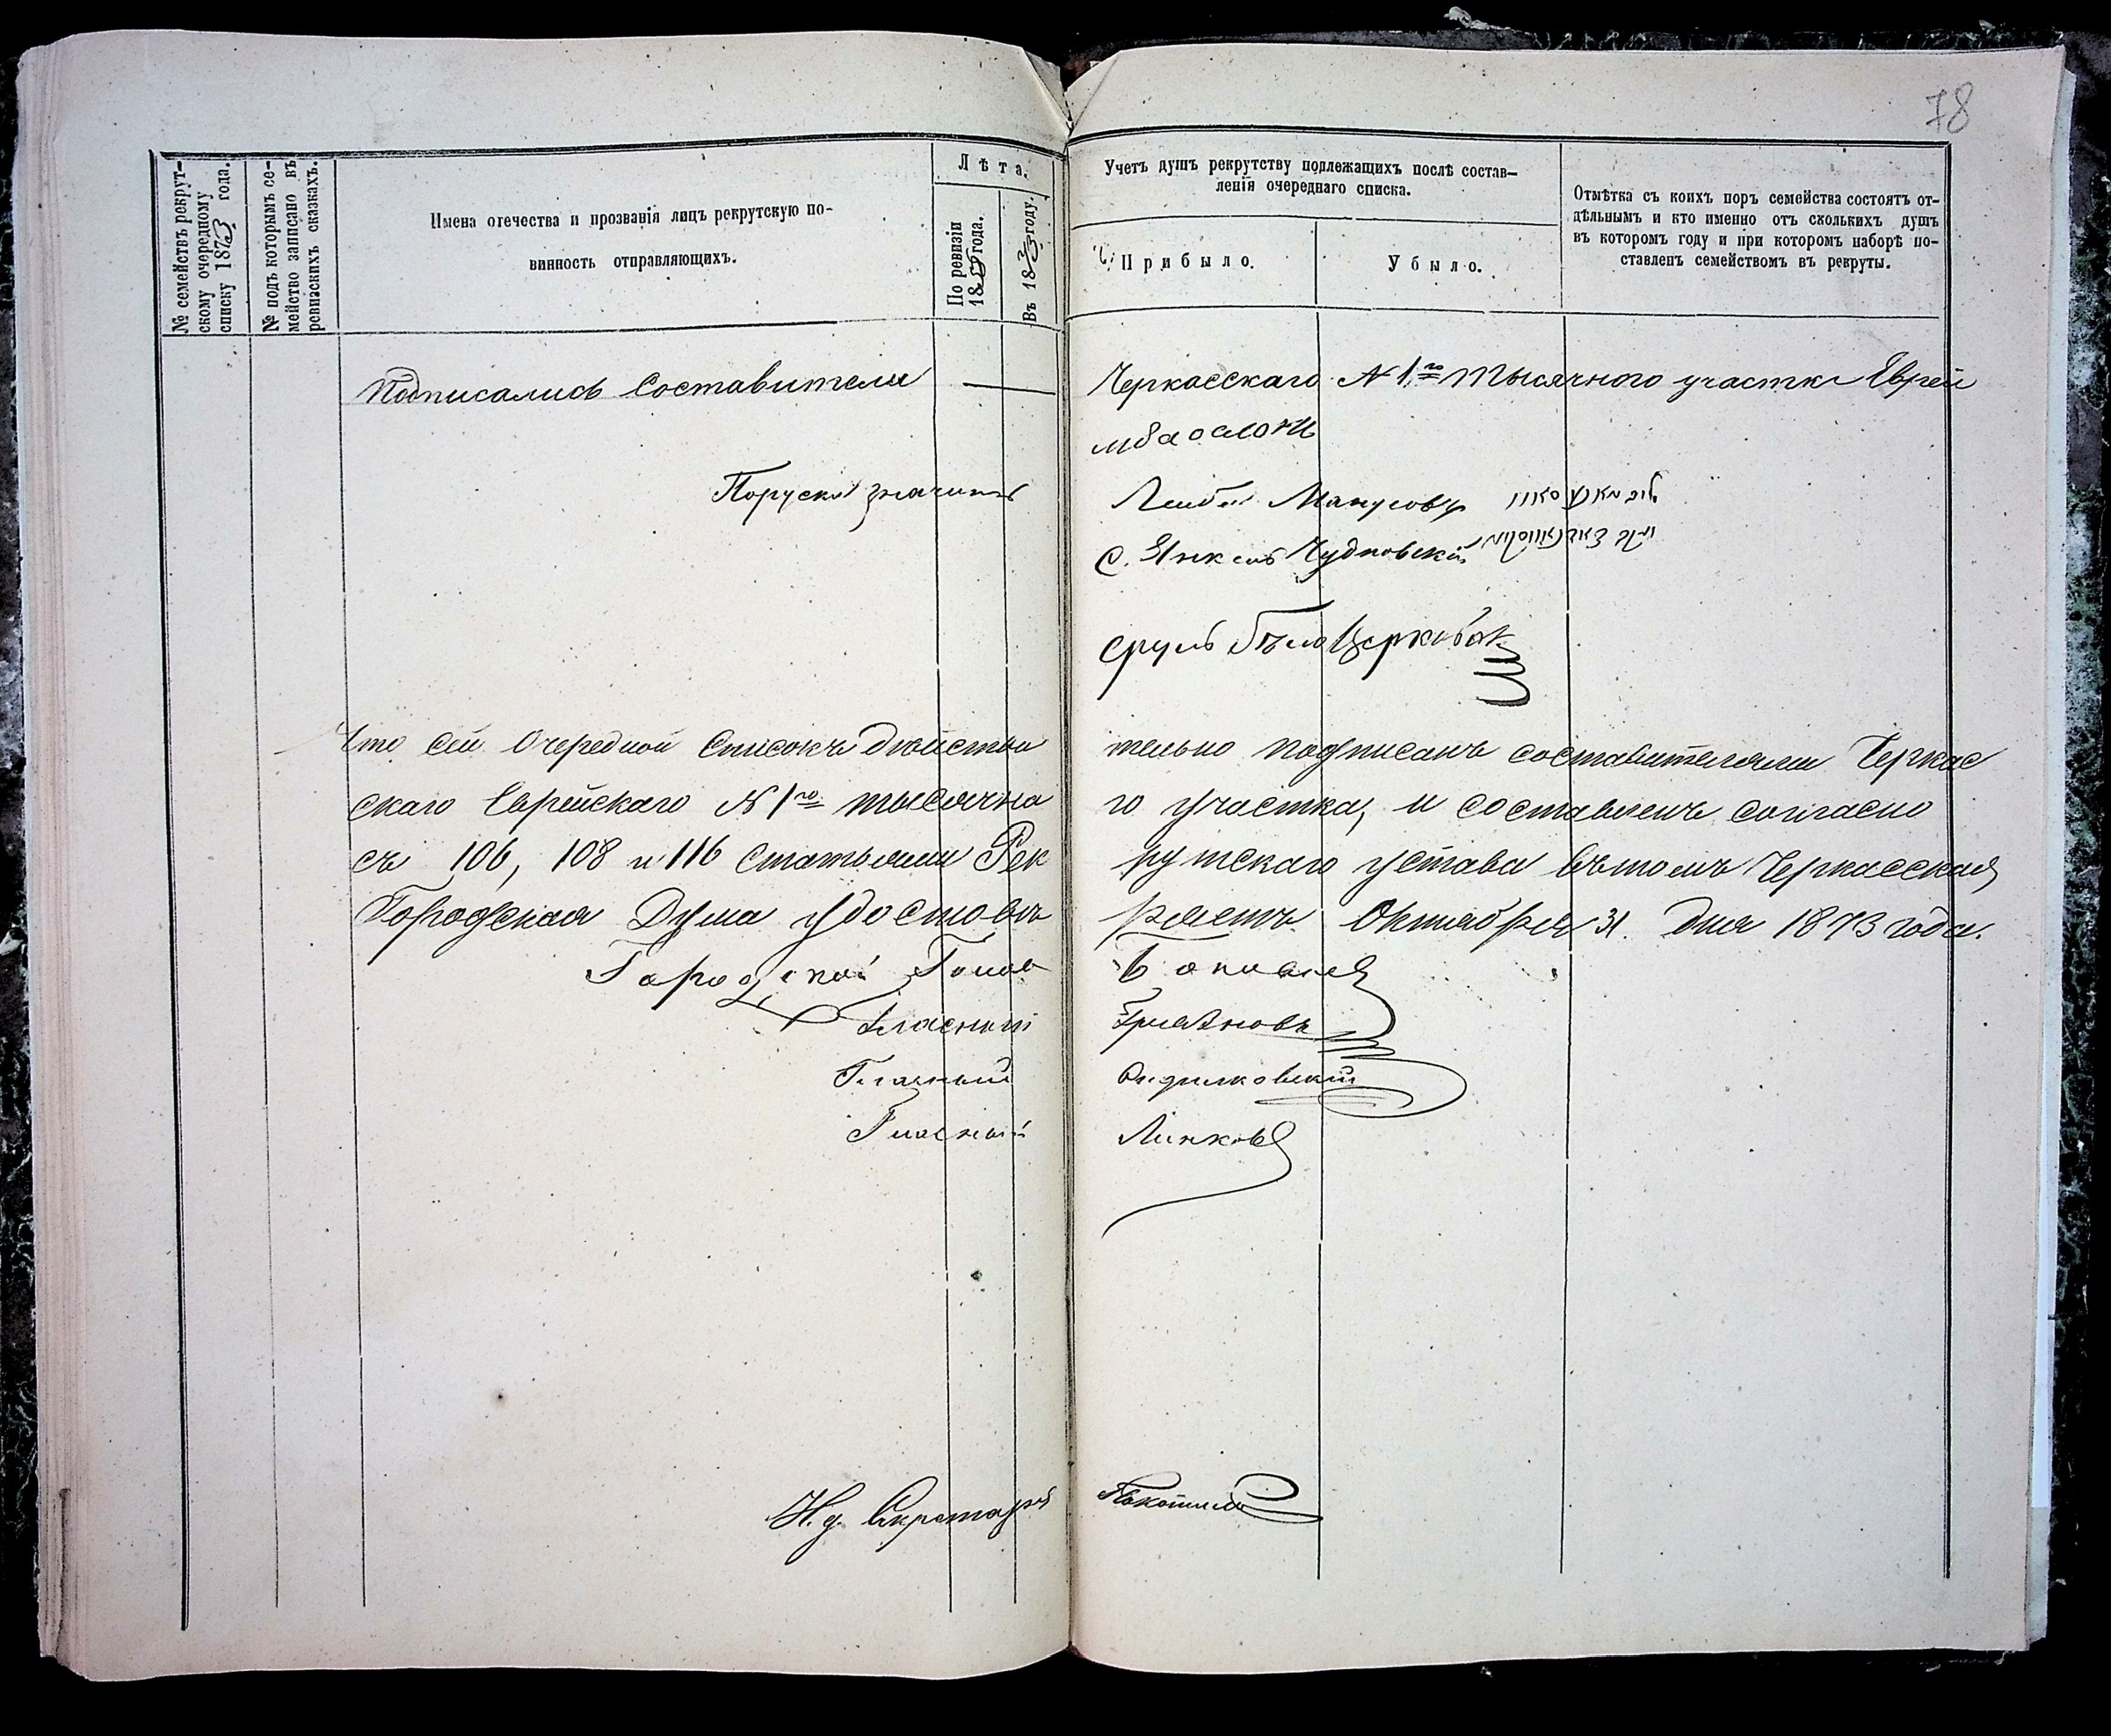 78
№ семействъ рекрут-
скому очередному
списку 1873 года.
№ подъ которымъ се-
мейство записано въ
ревизскихъ сказкахъ.
Имена отечества и прозванія лицъ рекрутскую по-
винность отправляющихъ.
Лѣта.
По ревизіи
1858 года.
Въ 1873 году.
Учетъ душъ рекрутству подлежащихъ послѣ состав-
ленія очереднаго списка.
Прибыло.
Убыло.
Отмѣтка съ коихъ поръ семейства состоятъ от-
дѣльнымъ и кто именно отъ сколькихъ душъ
въ которомъ году и при которомъ наборѣ по-
ставленъ семействомъ въ рекруты.
Подписались Составители — Черкасскаго № 1го Тысячного участка Евреи
Поруски значитъ Лейба Манусов
С. Янкель Чудновскій
Сруль Бѣлоцерковск
Что сей Очередной Списокъ дѣйстви тельно подписанъ составителями Черкас
скаго Еврейскаго № 1го тысячна го участка, и составленъ согласно
съ 106, 108 и 116 статьями Рек рутскаго устава въ томъ Черкасская
Городская Дума удостовѣ ряетъ. Октября 31 дня 1873 года.
Городской Голов
Гласный
Гласный
Гласный Линков
И. д. Секретаря